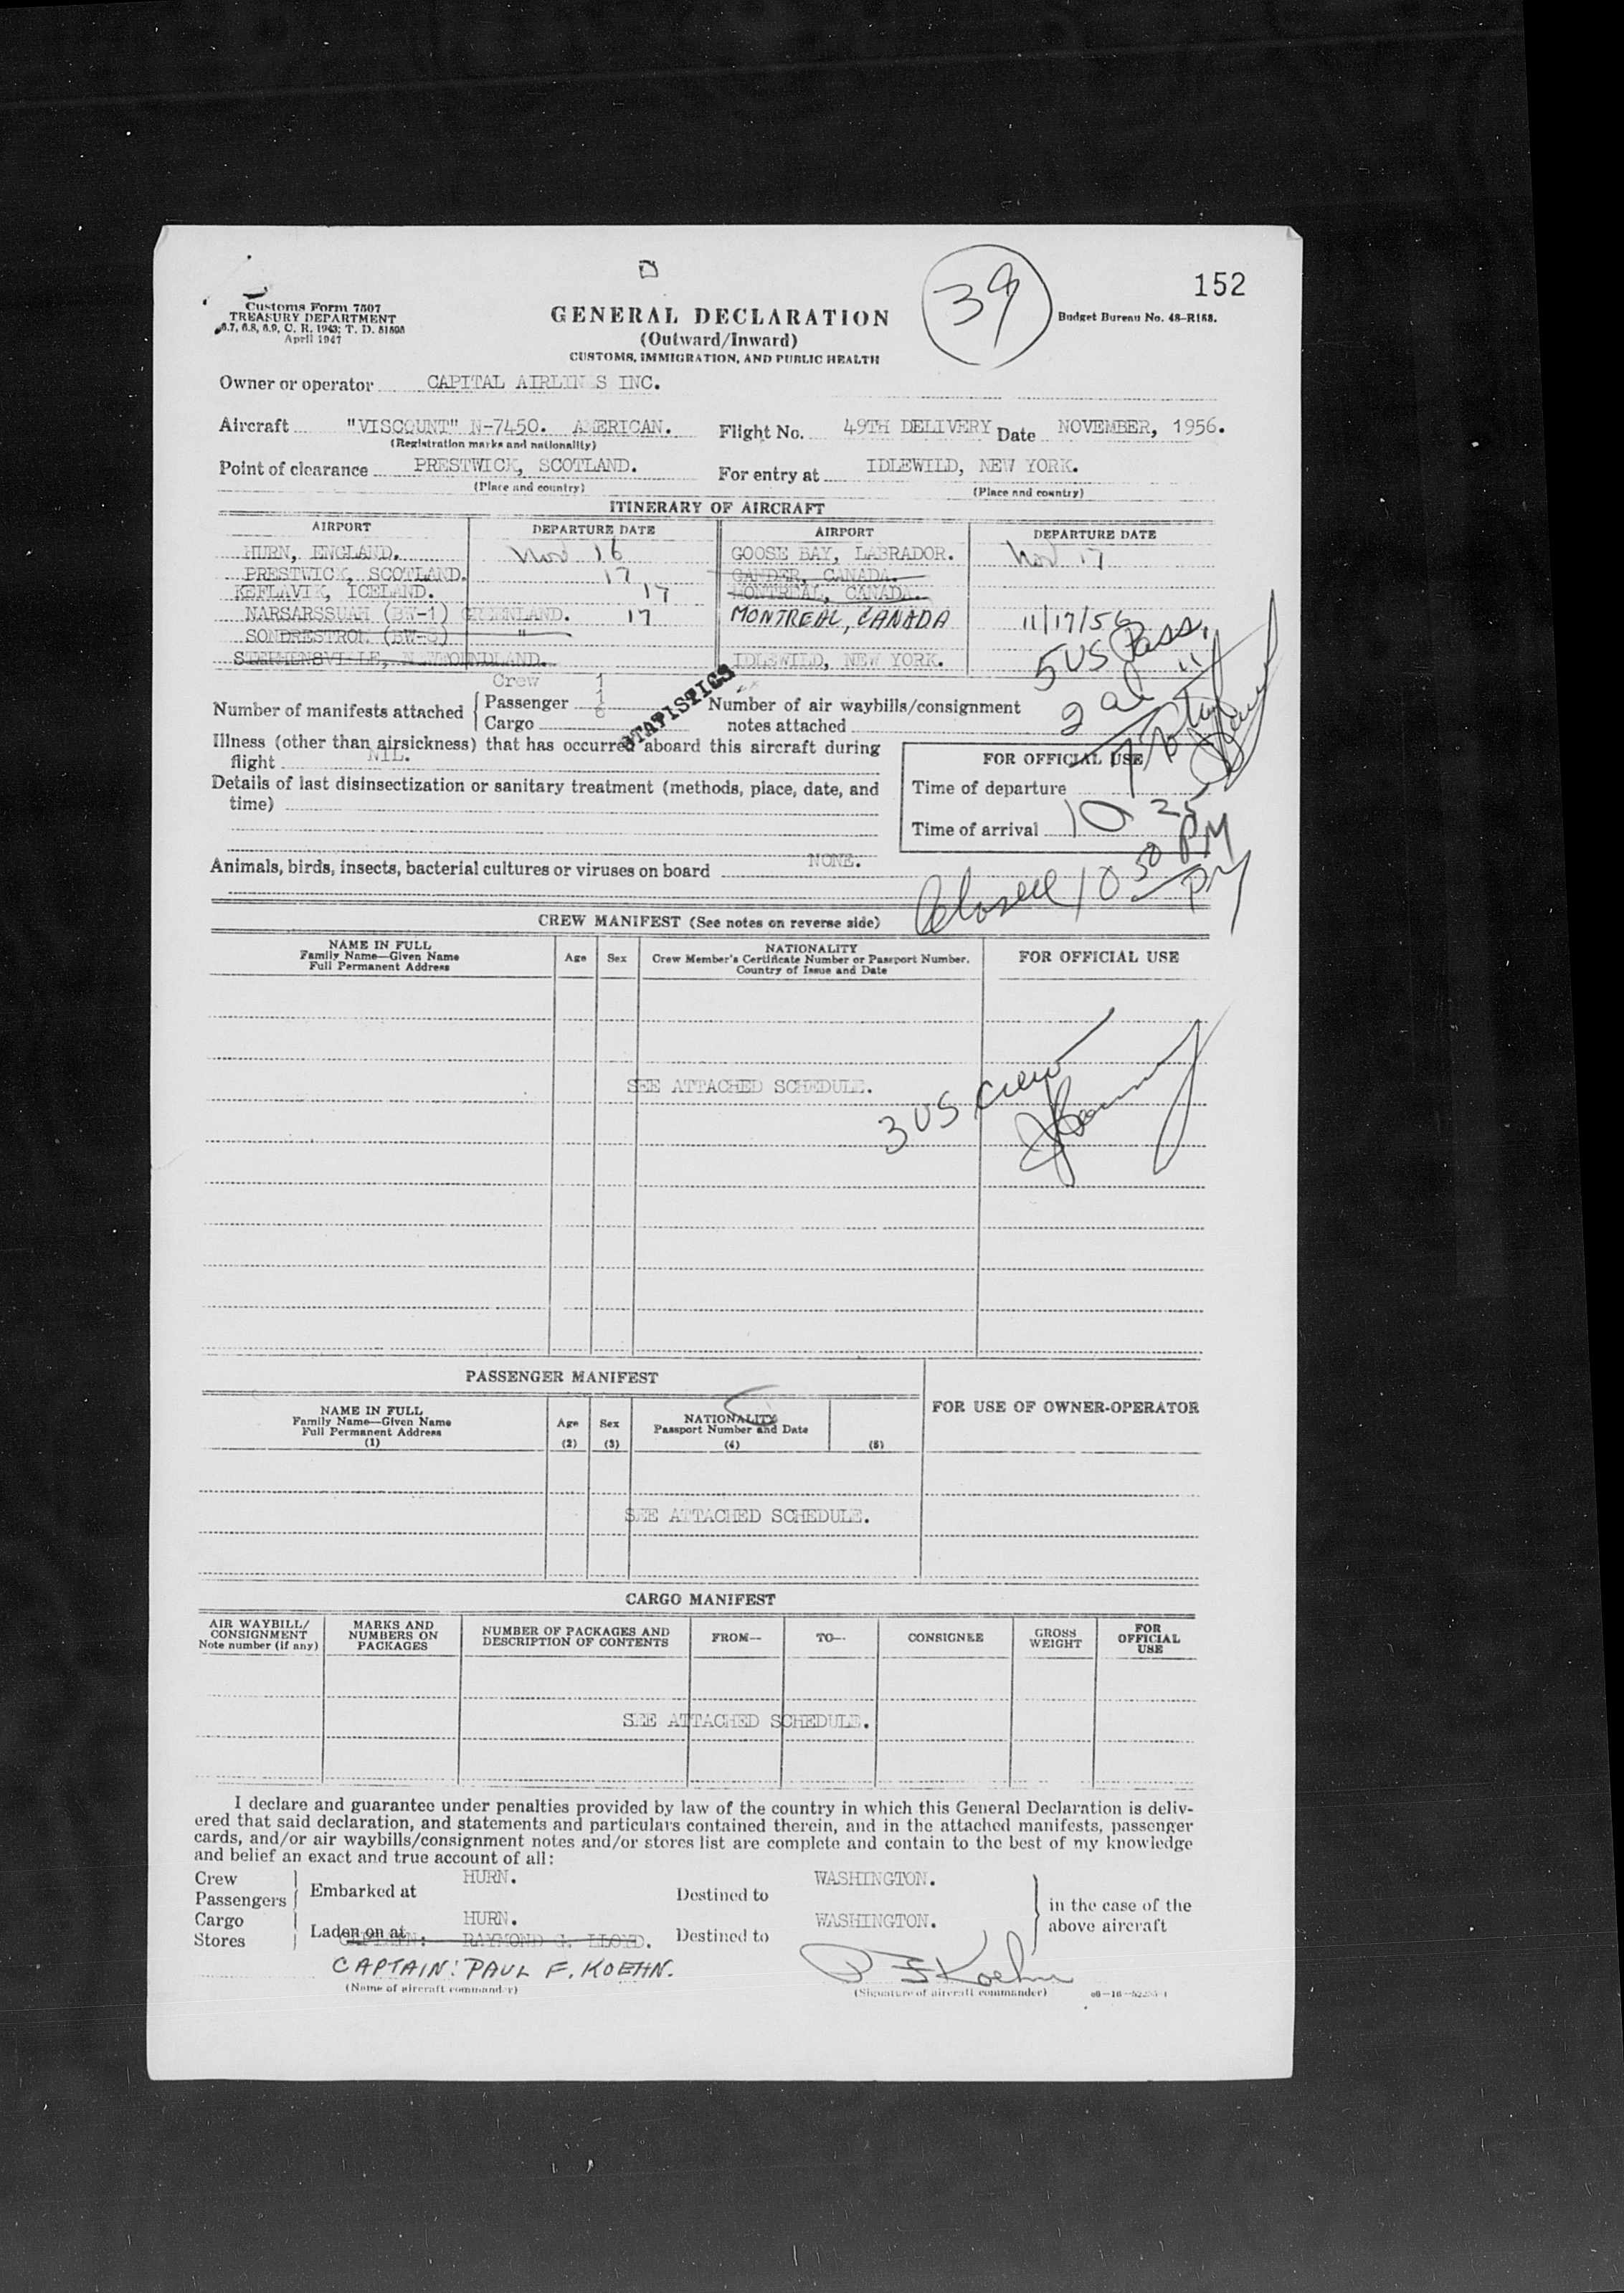 152
39
Customs Form 7507
TREASURY DEPARTMENT
6.7, 6.8, 6.9, C. R. 1943; T. D. 51698
April 1947
GENERAL DECLARATION
(Outward/Inward)
CUSTOMS, IMMIGRATION, AND PUBLIC HEALTH
Budget Bureau No. 48-R168.
Owner or operator CAPITAL AIRLINES INC.
Aircraft "VISCOUNT" N-7450. AMERICAN. Flight No. 49TH DELIVERY Date NOVEMBER, 1956.
(Registration marks and nationality)
Point of clearance PRESTWICK, SCOTLAND. For entry at IDLEWILD, NEW YORK.
(Place and country) (Place and country)
ITINERARY OF AIRCRAFT
AIRPORT DEPARTURE DATE AIRPORT DEPARTURE DATE
HURN, ENGLAND. Nov 16 GOOSE BAY, LABRADOR. Nov 17
PRESTWICK, SCOTLAND. 17 GANDER, CANADA.
KEFLAVIK, ICELAND. 17 MONTREAL, CANADA.
NARSARSSUAH (BW-1) GREENLAND. 17 MONTREAL, CANADA 11/17/56
SONDRESTROM (BW-8) "
STEPHENSVILLE, NEWFOUNDLAND. IDLEWILD, NEW YORK. 5 US Pass.
2 al "
7 Total
Crew 1
Number of manifests attached Passenger 1
Cargo 6
STATISTICS
Number of air waybills/consignment
notes attached
Illness (other than airsickness) that has occurred aboard this aircraft during
flight NIL.
Details of last disinsectization or sanitary treatment (methods, place, date, and
time)
FOR OFFICIAL USE
Time of departure
Time of arrival 10 25 PM
Animals, birds, insects, bacterial cultures or viruses on board NONE.
Closed 10 30 PM
CREW MANIFEST (See notes on reverse side)
NAME IN FULL
Family Name—Given Name
Full Permanent Address
Age Sex
NATIONALITY
Crew Member's Certificate Number or Passport Number,
Country of Issue and Date
FOR OFFICIAL USE
SEE ATTACHED SCHEDULE.
3 US Crew
PASSENGER MANIFEST
NAME IN FULL
Family Name—Given Name
Full Permanent Address
(1)
Age
(2)
Sex
(3)
NATIONALITY
Passport Number and Date
(4)
(5)
FOR USE OF OWNER-OPERATOR
SEE ATTACHED SCHEDULE.
CARGO MANIFEST
AIR WAYBILL/
CONSIGNMENT
Note number (if any)
MARKS AND
NUMBERS ON
PACKAGES
NUMBER OF PACKAGES AND
DESCRIPTION OF CONTENTS
FROM—
TO—
CONSIGNEE
GROSS
WEIGHT
FOR
OFFICIAL
USE
SEE ATTACHED SCHEDULE.
I declare and guarantee under penalties provided by law of the country in which this General Declaration is deliv-
ered that said declaration, and statements and particulars contained therein, and in the attached manifests, passenger
cards, and/or air waybills/consignment notes and/or stores list are complete and contain to the best of my knowledge
and belief an exact and true account of all:
Crew
Passengers Embarked at HURN. Destined to WASHINGTON.
in the case of the
above aircraft
Cargo
Stores Laden on at HURN. Destined to WASHINGTON.
CAPTAIN: RAYMOND G. LLOYD.
CAPTAIN: PAUL F. KOEHN. P F Koehn
(Name of aircraft commander) (Signature of aircraft commander)